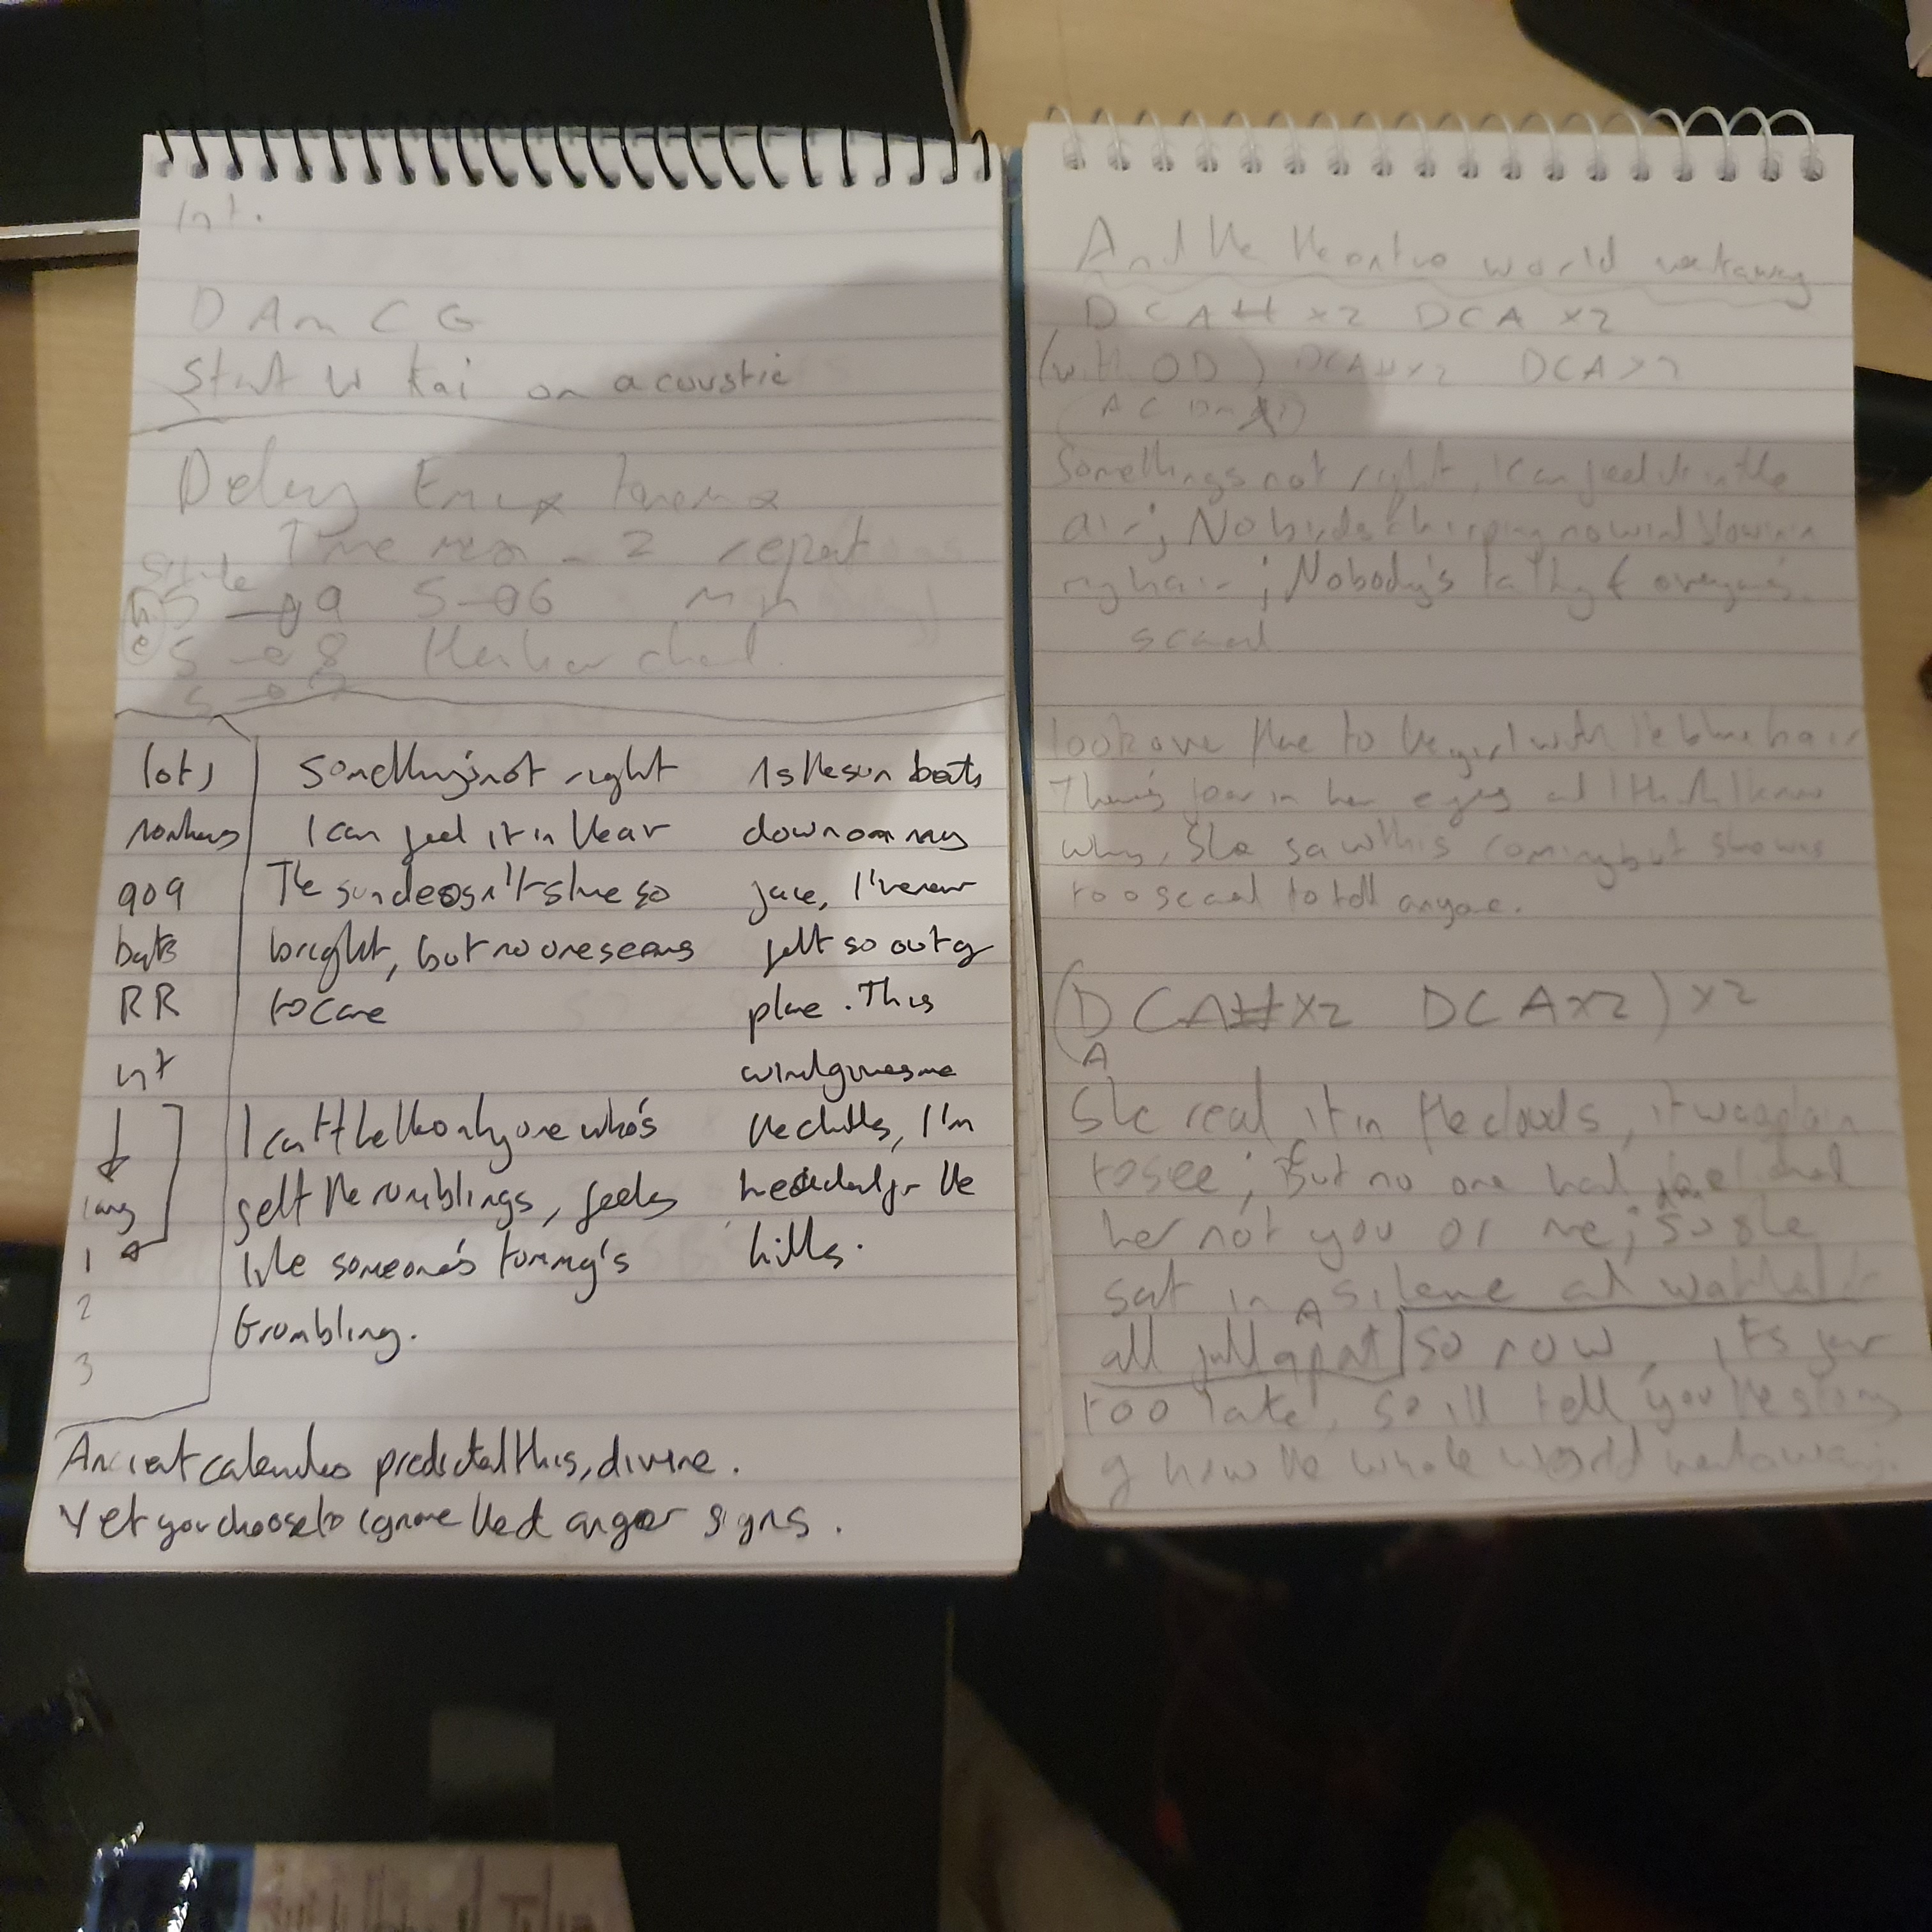 Int.
D Am C G
Start w Kai on acoustic
Delay
Time max - 2 repeat
5 → 9 5 → 6
5 → 8 chord.
5 →
lots
909
RR
Int
1
2
3
Something's not right
I can feel it in the air
The sun doesn't shine so
bright, but no one seems
to care
I can't be the only one who's
felt the rumblings, feels
like someone's tummy's
Grumbling.
As the sun beats
down on my
face, I've never
felt so out of
place. This
wind gives me
the chills, I'm
headed for the
hills.
Ancient calendars predicted this, divine.
Yet you choose to ignore the danger signs.
And the the entire world went away
D C A# x2 DCA x2
(with OD) DCA# x2 DCA x2
Somethings not right, I can feel it in the
air; No birds chirping no wind blowin
my hair; Nobody's talking & everyone's
scared
look over there to the girl with the blue hair
There's fear in her eyes and I think I know
why, She saw this coming but she was
too scared to tell anyone.
(D C A# x2 DCA x2) x2
A
She read it in the clouds, it was plain
to see; But no one had
her not you or me; So she
sat in A silence and watched it
all fall apart so now, it's far
too late, so ill tell you the story
of how the whole world went away.